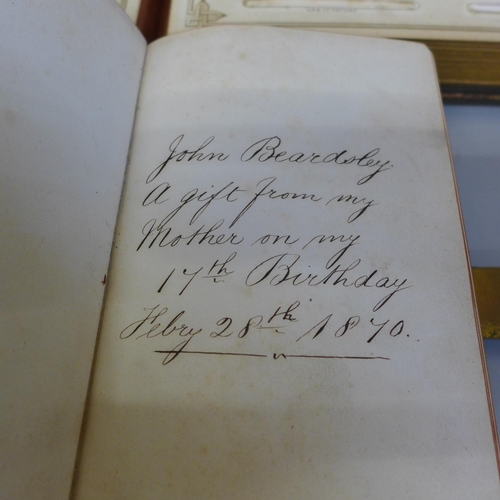 John Beardsley.
A gift from my
Mother on my
17th Birthday
Febry 28th 1870.